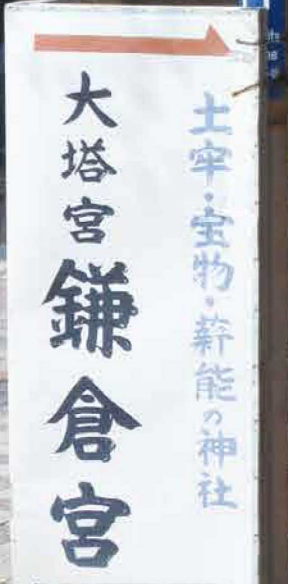 土牢・宝物・薪能の神社
大塔宮鎌倉宮